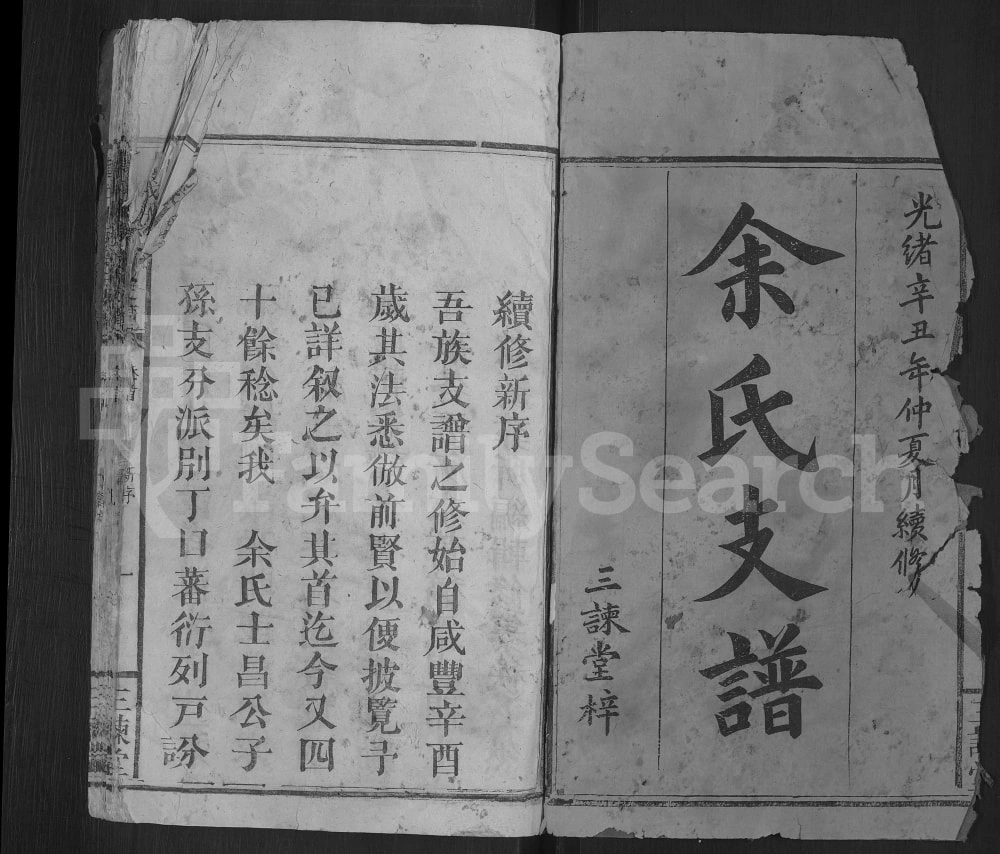 光緒辛丑年仲夏月續修
余氏支譜
三諫堂梓
續修新序
吾族支譜之修始自咸豐辛酉
歲其法悉倣前賢以便披覽予
已詳叙之以弁其首迄今又四
十餘稔矣我 余氏士昌公子
孫支分派別丁口蕃衍列戸訜
新序
一
三諫堂
FamilySearch